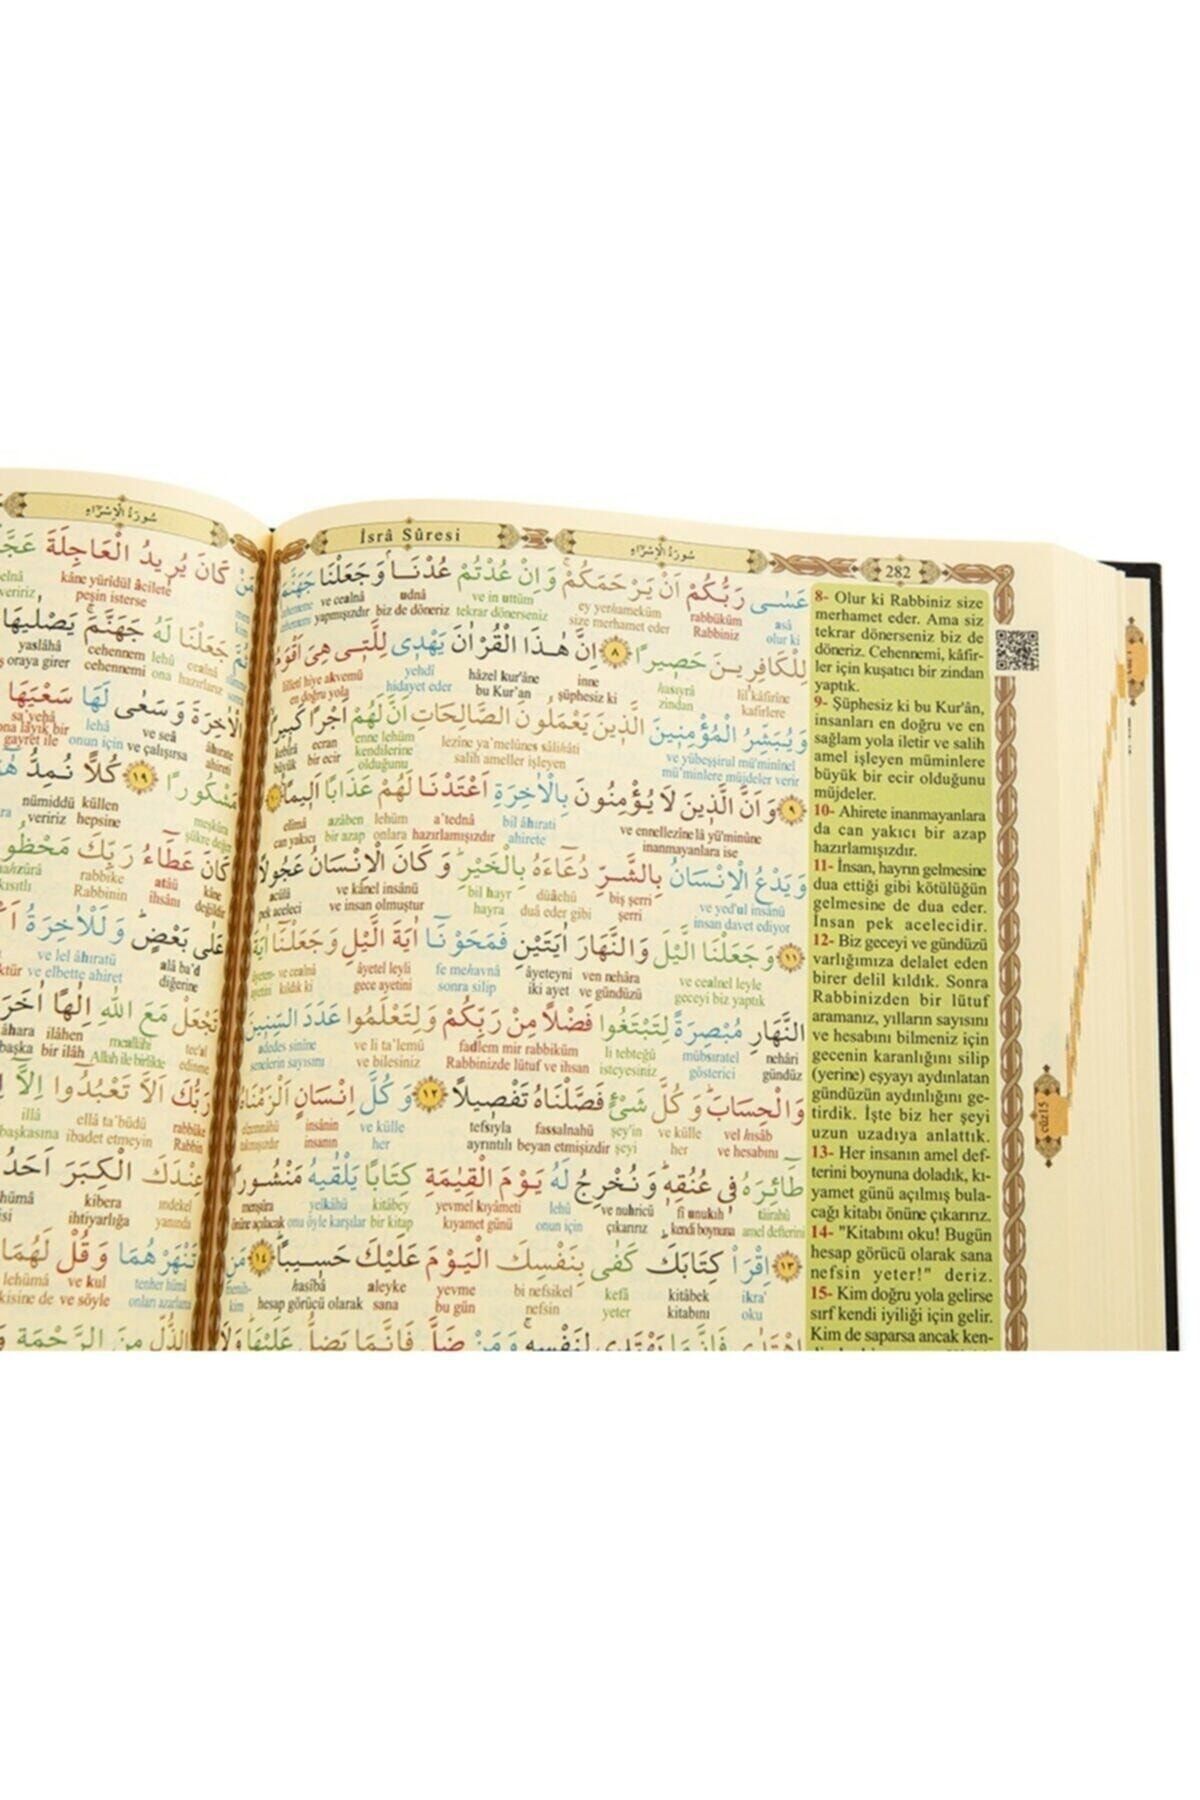 İsrâ Sûresi
سُورَةُ الْاِسْرَاءِ
282
عَسٰى رَبُّكُمْ اَنْ يَرْحَمَكُمْ وَاِنْ عُدْتُمْ عُدْنَا وَجَعَلْنَا جَهَنَّمَ
asâ rabbüküm ey yerhameküm ve in uttüm udnâ ve cealnâ
olur ki Rabbiniz size merhamet eder tekrar dönerseniz biz de döneriz yapmışızdır
لِلْكَافِرِينَ حَصِيرًا ٨ اِنَّ هٰذَا الْقُرْاٰنَ يَهْدِى لِلَّتِى هِىَ اَقْوَمُ
lil kâfirîne hasıyrâ inne hâzel kur'âne yehdî lilletî hiye akvemü
kafirlere zindan şüphesiz ki bu Kur'an hidayet eder en doğru yola
وَيُبَشِّرُ الْمُؤْمِنِينَ الَّذِينَ يَعْمَلُونَ الصَّالِحَاتِ اَنَّ لَهُمْ اَجْرًا كَبِيرًا
ve yübeşşirul mü'minînel lezîne ya'melûnes sâlihâti enne lehüm ecran kebîrâ
mü'minlere müjdeler verir salih ameller işleyen kendilerine olduğunu bir ecir büyük
٩ وَاَنَّ الَّذِينَ لَا يُؤْمِنُونَ بِالْاٰخِرَةِ اَعْتَدْنَا لَهُمْ عَذَابًا اَلِيمًا
ve ennellezîne lâ yü'minûne bil âhırati a'tednâ lehüm azâben elîmâ
inanmayanlara ise ahirete hazırlamışızdır onlara bir azap can yakıcı
وَيَدْعُ الْاِنْسَانُ بِالشَّرِّ دُعَاءَهُ بِالْخَيْرِ وَكَانَ الْاِنْسَانُ عَجُولًا
ve yed'ul insânü biş şerri düâehû bil hayr ve kânel insânü acûlâ
insan davet ediyor şerri duâ eder gibi hayra ve insan olmuştur pek aceleci
١١ وَجَعَلْنَا الَّيْلَ وَالنَّهَارَ اٰيَتَيْنِ فَمَحَوْنَا اٰيَةَ الَّيْلِ وَجَعَلْنَا اٰيَةَ
ve cealnel leyle ven nehâra âyeteyni fe mehavnâ âyetel leyli ve cealnâ
geceyi biz yaptık ve gündüzü iki ayet sonra silip gece ayetini kıldık ki
النَّهَارِ مُبْصِرَةً لِتَبْتَغُوا فَضْلًا مِنْ رَبِّكُمْ وَلِتَعْلَمُوا عَدَدَ السِّنِينَ
nehâri mübsıratel li tebteğû fadlem mir rabbiküm ve li ta'lemû adedes sinîne
gündüz gösterici isteyesiniz Rabbinizde lütuf ve ihsan ve bilesiniz senelerin sayısını
وَالْحِسَابَ وَكُلَّ شَىْءٍ فَصَّلْنَاهُ تَفْصِيلًا ١٢ وَكُلَّ اِنْسَانٍ اَلْزَمْنَاهُ
vel hısâb ve külle şey'in fassalnahü tefsıyla ve külle insânin elzemnâhü
ve hesabını her şeyi ayrıntılı beyan etmişizdir her insanın
طَائِرَهُ فِى عُنُقِهِ وَنُخْرِجُ لَهُ يَوْمَ الْقِيٰمَةِ كِتَابًا يَلْقٰيهُ مَنْشُورًا
tâirahû fî unukıh ve nuhricü lehû yevmel kıyâmeti kitâbey yelkâhü menşûra
amel defterini kendi boynuna çıkarırız onun için kıyamet günü bir kitap onu öyle karşılar önüne açılacak
١٣ اِقْرَاْ كِتَابَكَ كَفٰى بِنَفْسِكَ الْيَوْمَ عَلَيْكَ حَسِيبًا ١٤ مَنِ
ikra' kitâbek kefâ bi nefsikel yevme aleyke hasîbâ menih
oku kitabını yeter nefsin bu gün sana hesap görücü olarak kim
اهْتَدٰى فَاِنَّمَا يَهْتَدِى لِنَفْسِهِ وَمَنْ ضَلَّ فَاِنَّمَا يَضِلُّ عَلَيْهَا وَلَا
8- Olur ki Rabbiniz size
merhamet eder. Ama siz
tekrar dönerseniz biz de
döneriz. Cehennemi, kâfir-
ler için kuşatıcı bir zindan
yaptık.
9- Şüphesiz ki bu Kur'ân,
insanları en doğru ve en
sağlam yola iletir ve salih
amel işleyen müminlere
büyük bir ecir olduğunu
müjdeler.
10- Ahirete inanmayanlara
da can yakıcı bir azap
hazırlamışızdır.
11- İnsan, hayrın gelmesine
dua ettiği gibi kötülüğün
gelmesine de dua eder.
İnsan pek acelecidir.
12- Biz geceyi ve gündüzü
varlığımıza delalet eden
birer delil kıldık. Sonra
Rabbinizden bir lütuf
aramanız, yılların sayısını
ve hesabını bilmeniz için
gecenin karanlığını silip
(yerine) eşyayı aydınlatan
gündüzün aydınlığını ge-
tirdik. İşte biz her şeyi
uzun uzadıya anlattık.
13- Her insanın amel def-
terini boynuna doladık, kı-
yamet günü açılmış bula-
cağı kitabı önüne çıkarırız.
14- "Kitabını oku! Bugün
hesap görücü olarak sana
nefsin yeter!" deriz.
15- Kim doğru yola gelirse
sırf kendi iyiliği için gelir.
Kim de saparsa ancak ken-
cüz15
سُورَةُ الْاِسْرَاءِ
كَانَ يُرِيدُ الْعَاجِلَةَ
kâne yürîdül âcilete
peşin isterse
جَعَلْنَا لَهُ جَهَنَّمَ يَصْلٰيهَا
cealnâ lehû cehennem yaslâhâ
hazırlarız ona cehennemi oraya girer
الْاٰخِرَةَ وَسَعٰى لَهَا سَعْيَهَا
âhırate ve seâ lehâ sa'yehâ
ahireti ve çalışırsa onun için gayret ile
مَشْكُورًا ١٩ كُلًّا نُمِدُّ
meşkûra küllen nümiddü
hepsine veririz
كَانَ عَطَاءُ رَبِّكَ مَحْظُورًا
kâne atâü rabbike
değildir ihsânı Rabbinin
عَلٰى بَعْضٍ وَلَلْاٰخِرَةُ
alâ ba'd ve lel âhıratü
diğerine ve elbette ahiret
تَجْعَلْ مَعَ اللّٰهِ اِلٰهًا اٰخَرَ
tec'al meallâhi ilâhen âhara
edinme Allah ile birlikte bir ilâh başka
رَبُّكَ اَلَّا تَعْبُدُوا اِلَّا
rabbüke ellâ ta'büdû illâ
Rabbin ibadet etmeyin başkasına
عِنْدَكَ الْكِبَرَ اَحَدُ
indekel kibera
yanında ihtiyarlığa
تَنْهَرْهُمَا وَقُلْ لَهُمَا
tenher hümâ ve kul lehümâ
onları azarlama ve söyle
الذُّلِّ مِنَ الرَّحْمَةِ